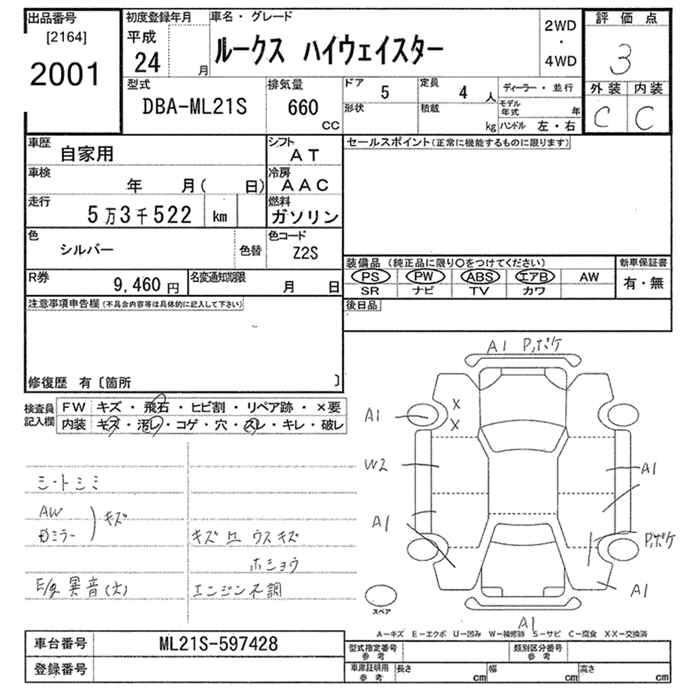 出品番号 初度登録年月 車名・グレード 評価点
[2164] 平成 ルークス ハイウェイスター 2WD
2001 24 月 ・ 4WD 3
型式 排気量 ドア 5 定員 4 人 ディーラー・並行 外装 内装
DBA-ML21S 660 CC 形状 積載 kg モデル年式 年 C C
ハンドル 左・右
車歴 自家用 シフト AT セールスポイント(正常に機能するものに限ります)
車検 年 月( 日) 冷房 AAC
走行 5万3千522 km 燃料 ガソリン
色 シルバー 色替 色コード Z2S
装備品 (純正品に限り○をつけてください) 新車保証書
R券 9,460 円 名変通知期限 月 日 PS PW ABS エアB AW 有・無
SR ナビ TV カワ
注意事項申告欄(不具合内容等は具体的に記入して下さい) 後日品
修復歴 有〔箇所 〕
A1 P,ポケ
検査員 FW キズ・飛石・ヒビ割・リペア跡・×要
記入欄 内装 キズ・汚レ・コゲ・穴・スレ・キレ・破レ
A1 X
X
W2 A1
シートシミ
AW キズ
ミラー
A1 P,ポケ
キズ ウスキズ
ホショウ
E/g 異音(大) エンジン不調
A1
スペア
A1
A―キズ E―エクボ U―凹み W―補修跡 S―サビ C―腐食 XX―交換済
車台番号 ML21S-597428 型式指定番号 参考 類別区分番号 参考
登録番号 車庫証明用 参考 長さ cm 幅 cm 高さ cm